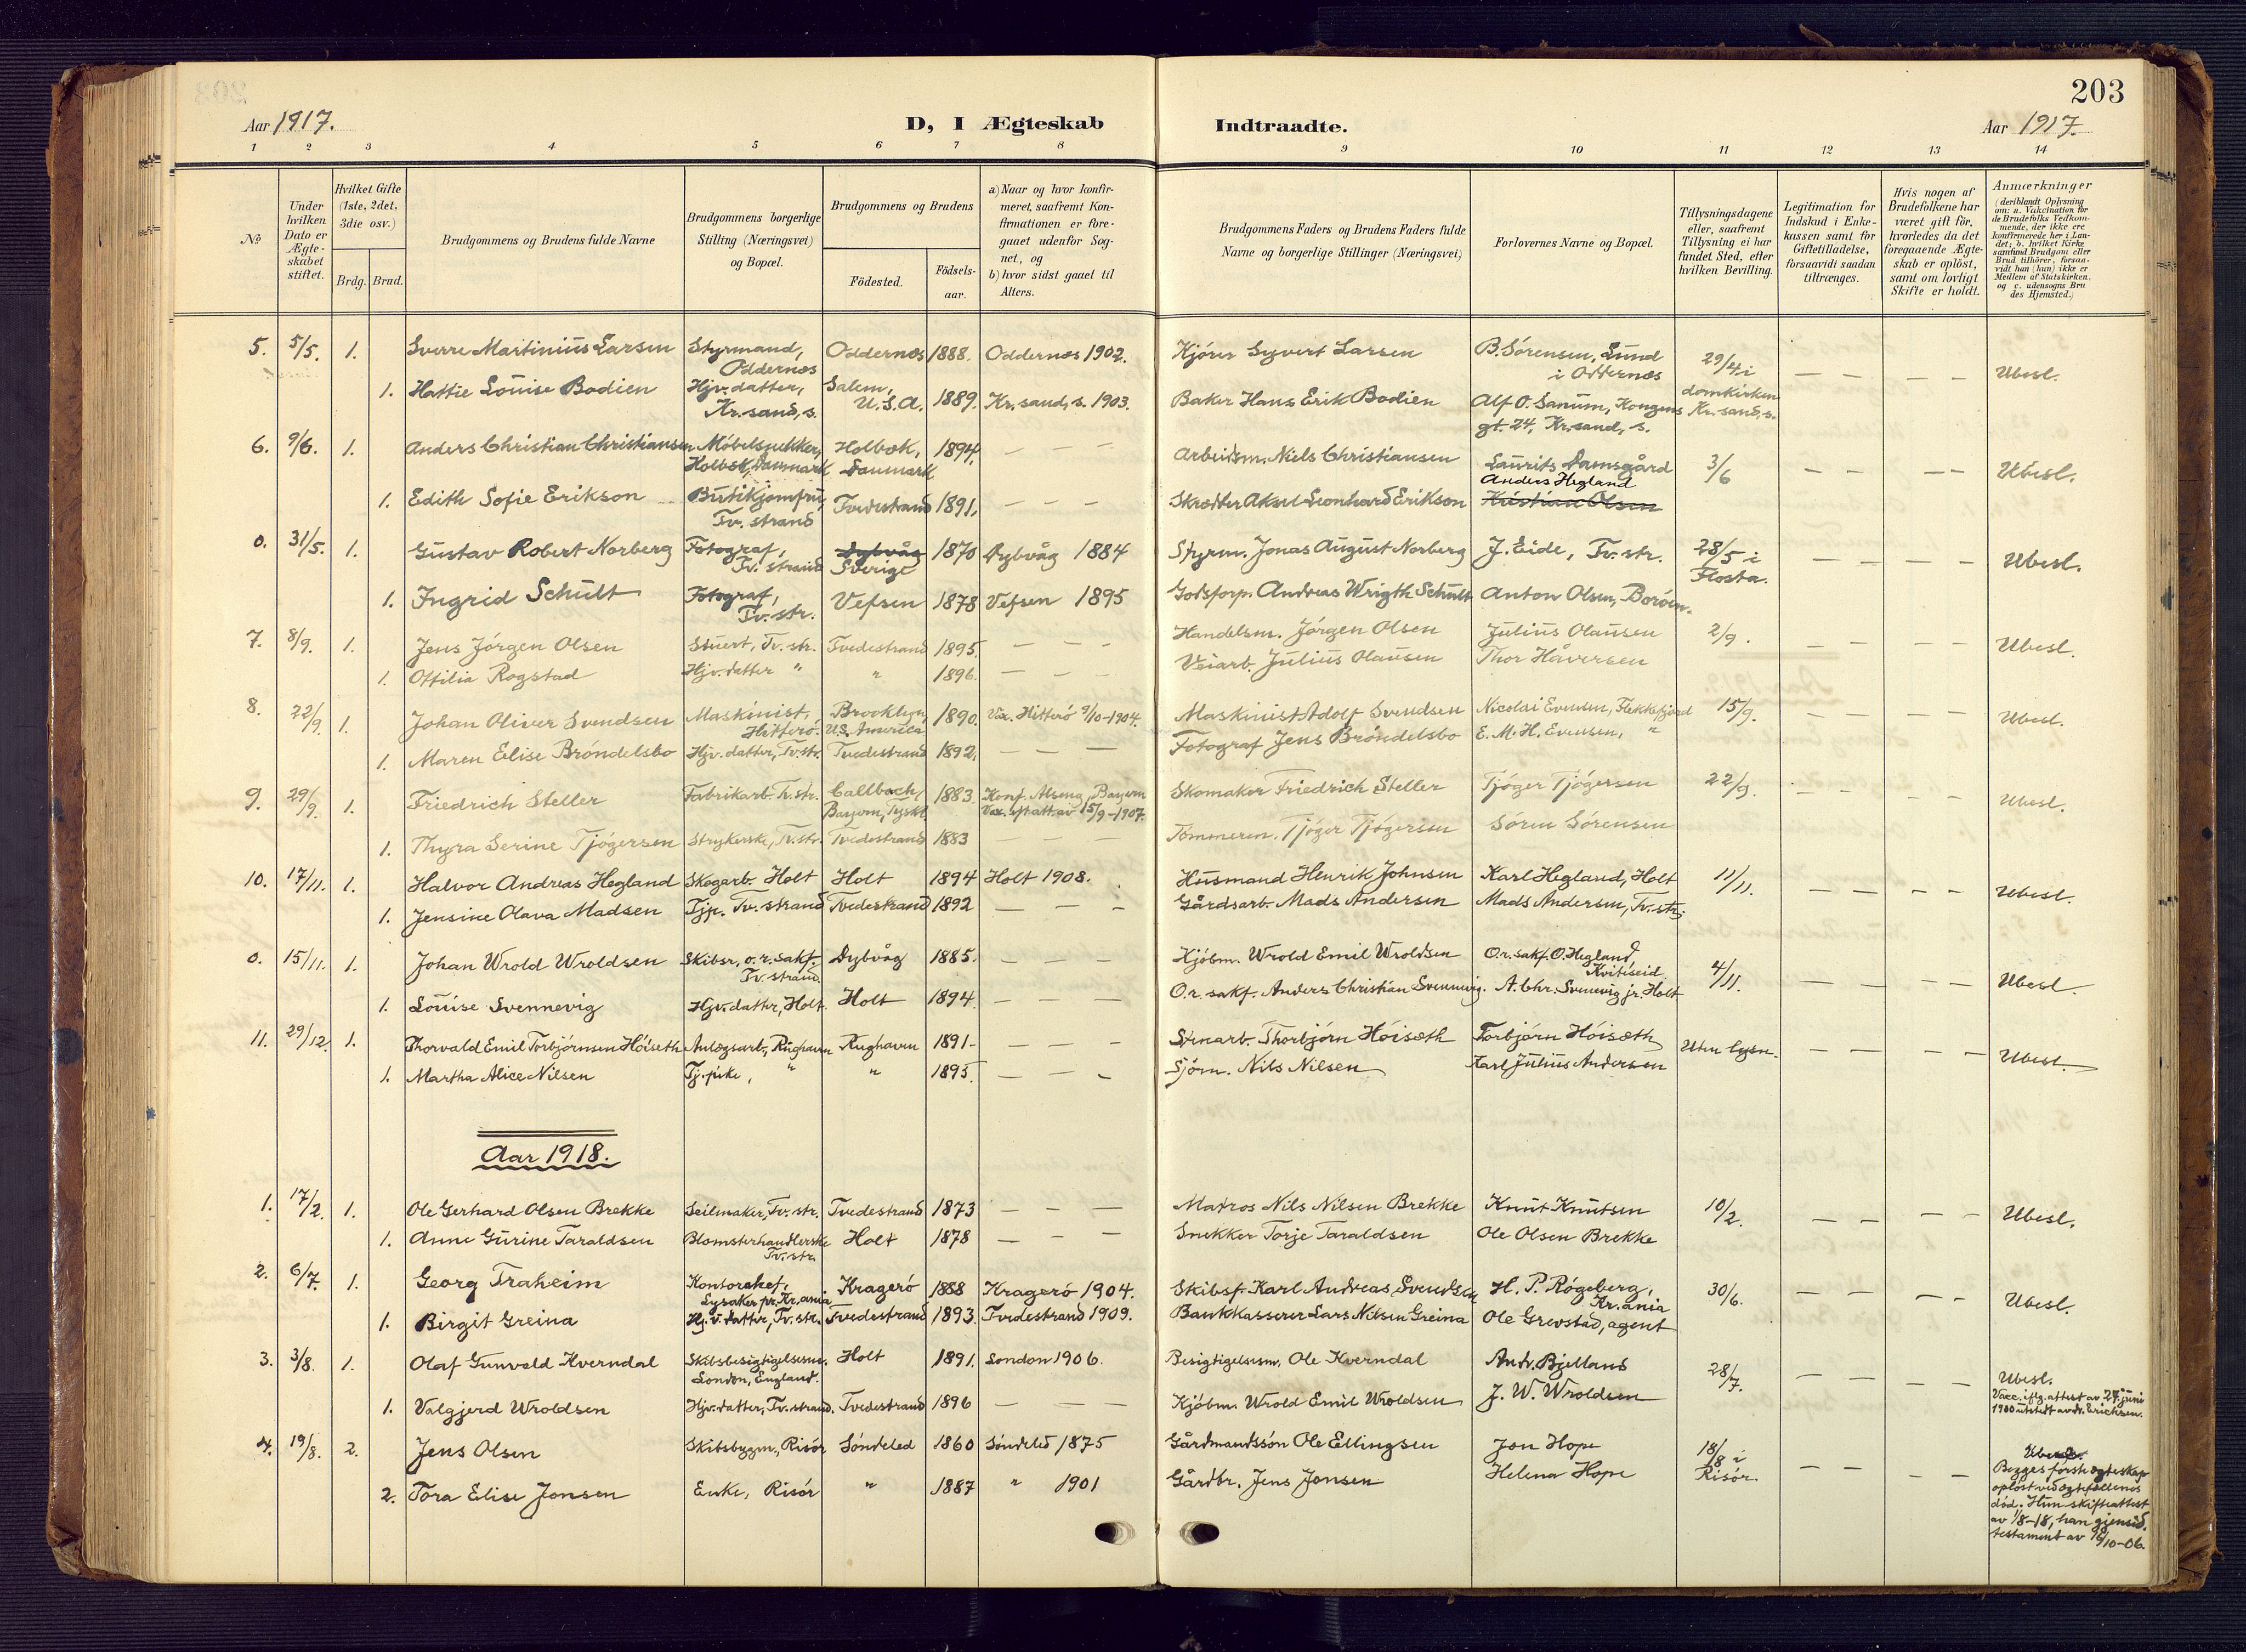 203
Aar 1917.
D, I Ægteskab
Indtraadte.
Aar 1917.
1 2 3 4 5 6 7 8 9 10 11 12 13 14
No
Under hvilken Dato er Ægteskabet stiftet.
Hvilket Gifte (1ste, 2det, 3die osv.)
Brdg. Brud.
Brudgommens og Brudens fulde Navne
Brudgommens borgerlige Stilling (Næringsvei) og Bopæl.
Brudgommens og Brudens
Fødested.
Fødsels-aar.
a) Naar og hvor konfirmeret, saafremt Konfirmationen er foregaaet udenfor Sognet, og
b) hvor sidst gaaet til Alters.
Brudgommens Faders og Brudens Faders fulde Navne og borgerlige Stillinger (Næringsvei)
Forlovernes Navne og Bopæl.
Tillysningsdagene eller, saafremt Tillysning ei har fundet Sted, efter hvilken Bevilling.
Legitimation for Indskud i Enkekassen samt for Giftetilladelse, forsaavidt saadan tiltrænges.
Hvis nogen af Brudefolkene har været gift før, hvorledes da det foregaaende Ægteskab er opløst, samt om lovligt Skifte er holdt.
Anmærkninger
(deriblandt Oplysning om: a. Vakcination for de Brudefolks Vedkommende, der ikke ere konfirmerede her i Landet; b. hvilket Kirkesamfund Brudgom eller Brud tilhører, forsaavidt han (hun) ikke er Medlem af Statskirken. og c. udensogns Brudes Hjemsted.)
5. 5/5. 1. Sverre Martinius Larsen Styrmand, Oddernes Oddernes 1888. Oddernes 1902. Kjörer Syvert Larsen B. Sörensen, Lund i Oddernes 29/4 i domkirken Kr.sand, s. — — — — Ubesl.
1. Hattie Louise Bodien Hjv. datter, Kr.sand, s. Salem, U.S.A. 1889. Kr.sand, s. 1903. Baker Hans Erik Bodien Alf O. Sanum, Kongens gt. 24, Kr.sand, s.
6. 9/6. 1. Anders Christian Christiansen Möbelsnekker, Holbæk, Danmark Holbæk, Danmark 1894. — — — Arbeidsm. Niels Christiansen Laurits Damsgård 3/6 — — — — Ubesl.
1. Edith Sofie Erikson Butikjomfru, Tv.strand Tvedestrand 1891. — — — Skrædder Aksel Leonhard Erikson Anders Hegland Kristian Olsen
0. 31/5. 1. Gustav Robert Norberg Fotograf, Tv.strand Dybvåg Sverige 1870 Dybvåg 1884 Styrm. Jonas August Norberg J. Eide, Tv.str. 28/5 i Flosta. — — — — Ubesl.
1. Ingrid Schult Fotograf, Tv.str. Vefsen 1878 Vefsen 1895 Godsforp. Andreas Wrigth Schult Anton Olsen, Boröen.
7. 8/9. 1. Jens Jörgen Olsen Stuert, Tv.str. Tvedestrand 1895. — — — Handelsm. Jörgen Olsen Julius Olausen 2/9. — — — — Ubesl.
1. Ottilia Rogstad Hjv. datter " " 1896. — — — Veiarb. Julius Olausen Thor Håversen
8. 22/9. 1. Johan Oliver Svendsen Maskinist, Hitterö. Brooklyn, U.S. America 1890. Vax. Hitterö 9/10-1904. Maskinist Adolf Svendsen Nicolai Evensen, Flekkefjord 15/9. — — — — Ubesl.
1. Maren Elise Bröndelsbo Hjv. datter, Tv.str. Tvedestrand 1892. — — — Fotograf Jens Bröndelsbo E. M. H. Evensen, "
9. 29/9. 1. Friedrich Steller Fabrikarb. Tv.str. Callbach, Bayern, Tyskl. 1883. Konf. Alsenz, Bayern Skomaker Friedrich Steller Tjöger Tjögersen 22/9. — — — — Ubesl.
1. Thyra Serine Tjögersen Strykerske, Tv.str. Tvedestrand 1883 — — Tömmerm. Tjöger Tjögersen Sören Sörensen
10. 17/11. 1. Halvor Andreas Hegland Skogarb. Holt Holt 1894 Holt 1908. Husmand Henrik Johnsen Karl Hegland, Holt 11/11. — — — — Ubesl.
1. Jensine Olava Madsen Tjp. Tv.strand Tvedestrand 1892 — — — Gårdsarb. Mads Andersen Mads Andersen, Tv.str.
0. 15/11. 1. Johan Wrold Wroldsen Skibsr., o.r.sakf. Tv.strand. Dybvåg 1885. — — — Kjöbm. Wrold Emil Wroldsen O.r.sakf. O. Hegland, Kvitiseid 4/11. — — — — Ubesl.
1. Louise Svennevig Hjv. datter, Holt. Holt 1894 — — — O.r.sakf. Anders Christian Svennevig. A. Chr. Svennevig jr. Holt
11. 29/12. 1. Thorvald Emil Torbjörnsen Höiseth Anlægsarb., Rughaven Rughaven 1891 - — — Stenarb. Thorbjörn Höisæth Torbjörn Höisæth Uten lysn. — — — — Ubesl.
1. Martha Alice Nilsen Tj.pike, " " 1895 — — — Sjöm. Nils Nilsen Karl Julius Andersen
Aar 1918.
1. 17/2. 1. Ole Gerhard Olsen Brekke Seilmaker, Tv.str. Tvedestrand 1873 — — — Matros Nils Nilsen Brekke Knut Knutsen 10/2. — — — — Ubesl.
1. Anne Gurine Taraldsen Blomsterhandlerske Tv.str. Holt 1878 — — — Snekker Torje Taraldsen Ole Olsen Brekke
2. 6/7. 1. Georg Traheim Kontorchef, Lysaker pr. Kr.ania Kragerö 1888 Kragerö 1904. Skibsf. Karl Andreas Svendsen H. P. Rögeberg, Kr.ania 30/6. — — — — Ubesl.
1. Birgit Greina Hj.v. datter, Tv.str. Tvedestrand 1893. Tvedestrand 1909. Bankkasserer Lars Nilsen Greina Ole Grevstad, agent
3. 3/8. 1. Olaf Gunvald Kverndal Skibsbesigtigelsesm. London, England. Holt 1891. London 1906. Besigtigelsesm. Ole Kverndal Andr. Bjelland 28/7. — — — — Ubesl.
Vacc. iflg. attest av 27 juni 1900 utstedt av dr. Erichsen.
1. Valgjerd Wroldsen Hjv. datter, Tv.strand. Tvedestrand 1896 — — — Kjöbm. Wrold Emil Wroldsen J. W. Wroldsen
4. 19/8. 2. Jens Olsen Skibsbygm., Risör Söndeled 1860 Söndeled 1875 Gårdmandssön Ole Ellingsen Jon Hope 18/8 i Risör. — — — — Ubesl.
1. 2. Tora Elise Jonsen Enke, Risör " 1887 " 1901 Gårdbr. Jens Jonsen Helena Hope
Begges förste ægteskap oplöst ved ægtefællenes död. Hun skifteattest av 1/8-18, han gjensid. testament av 16/10-06.